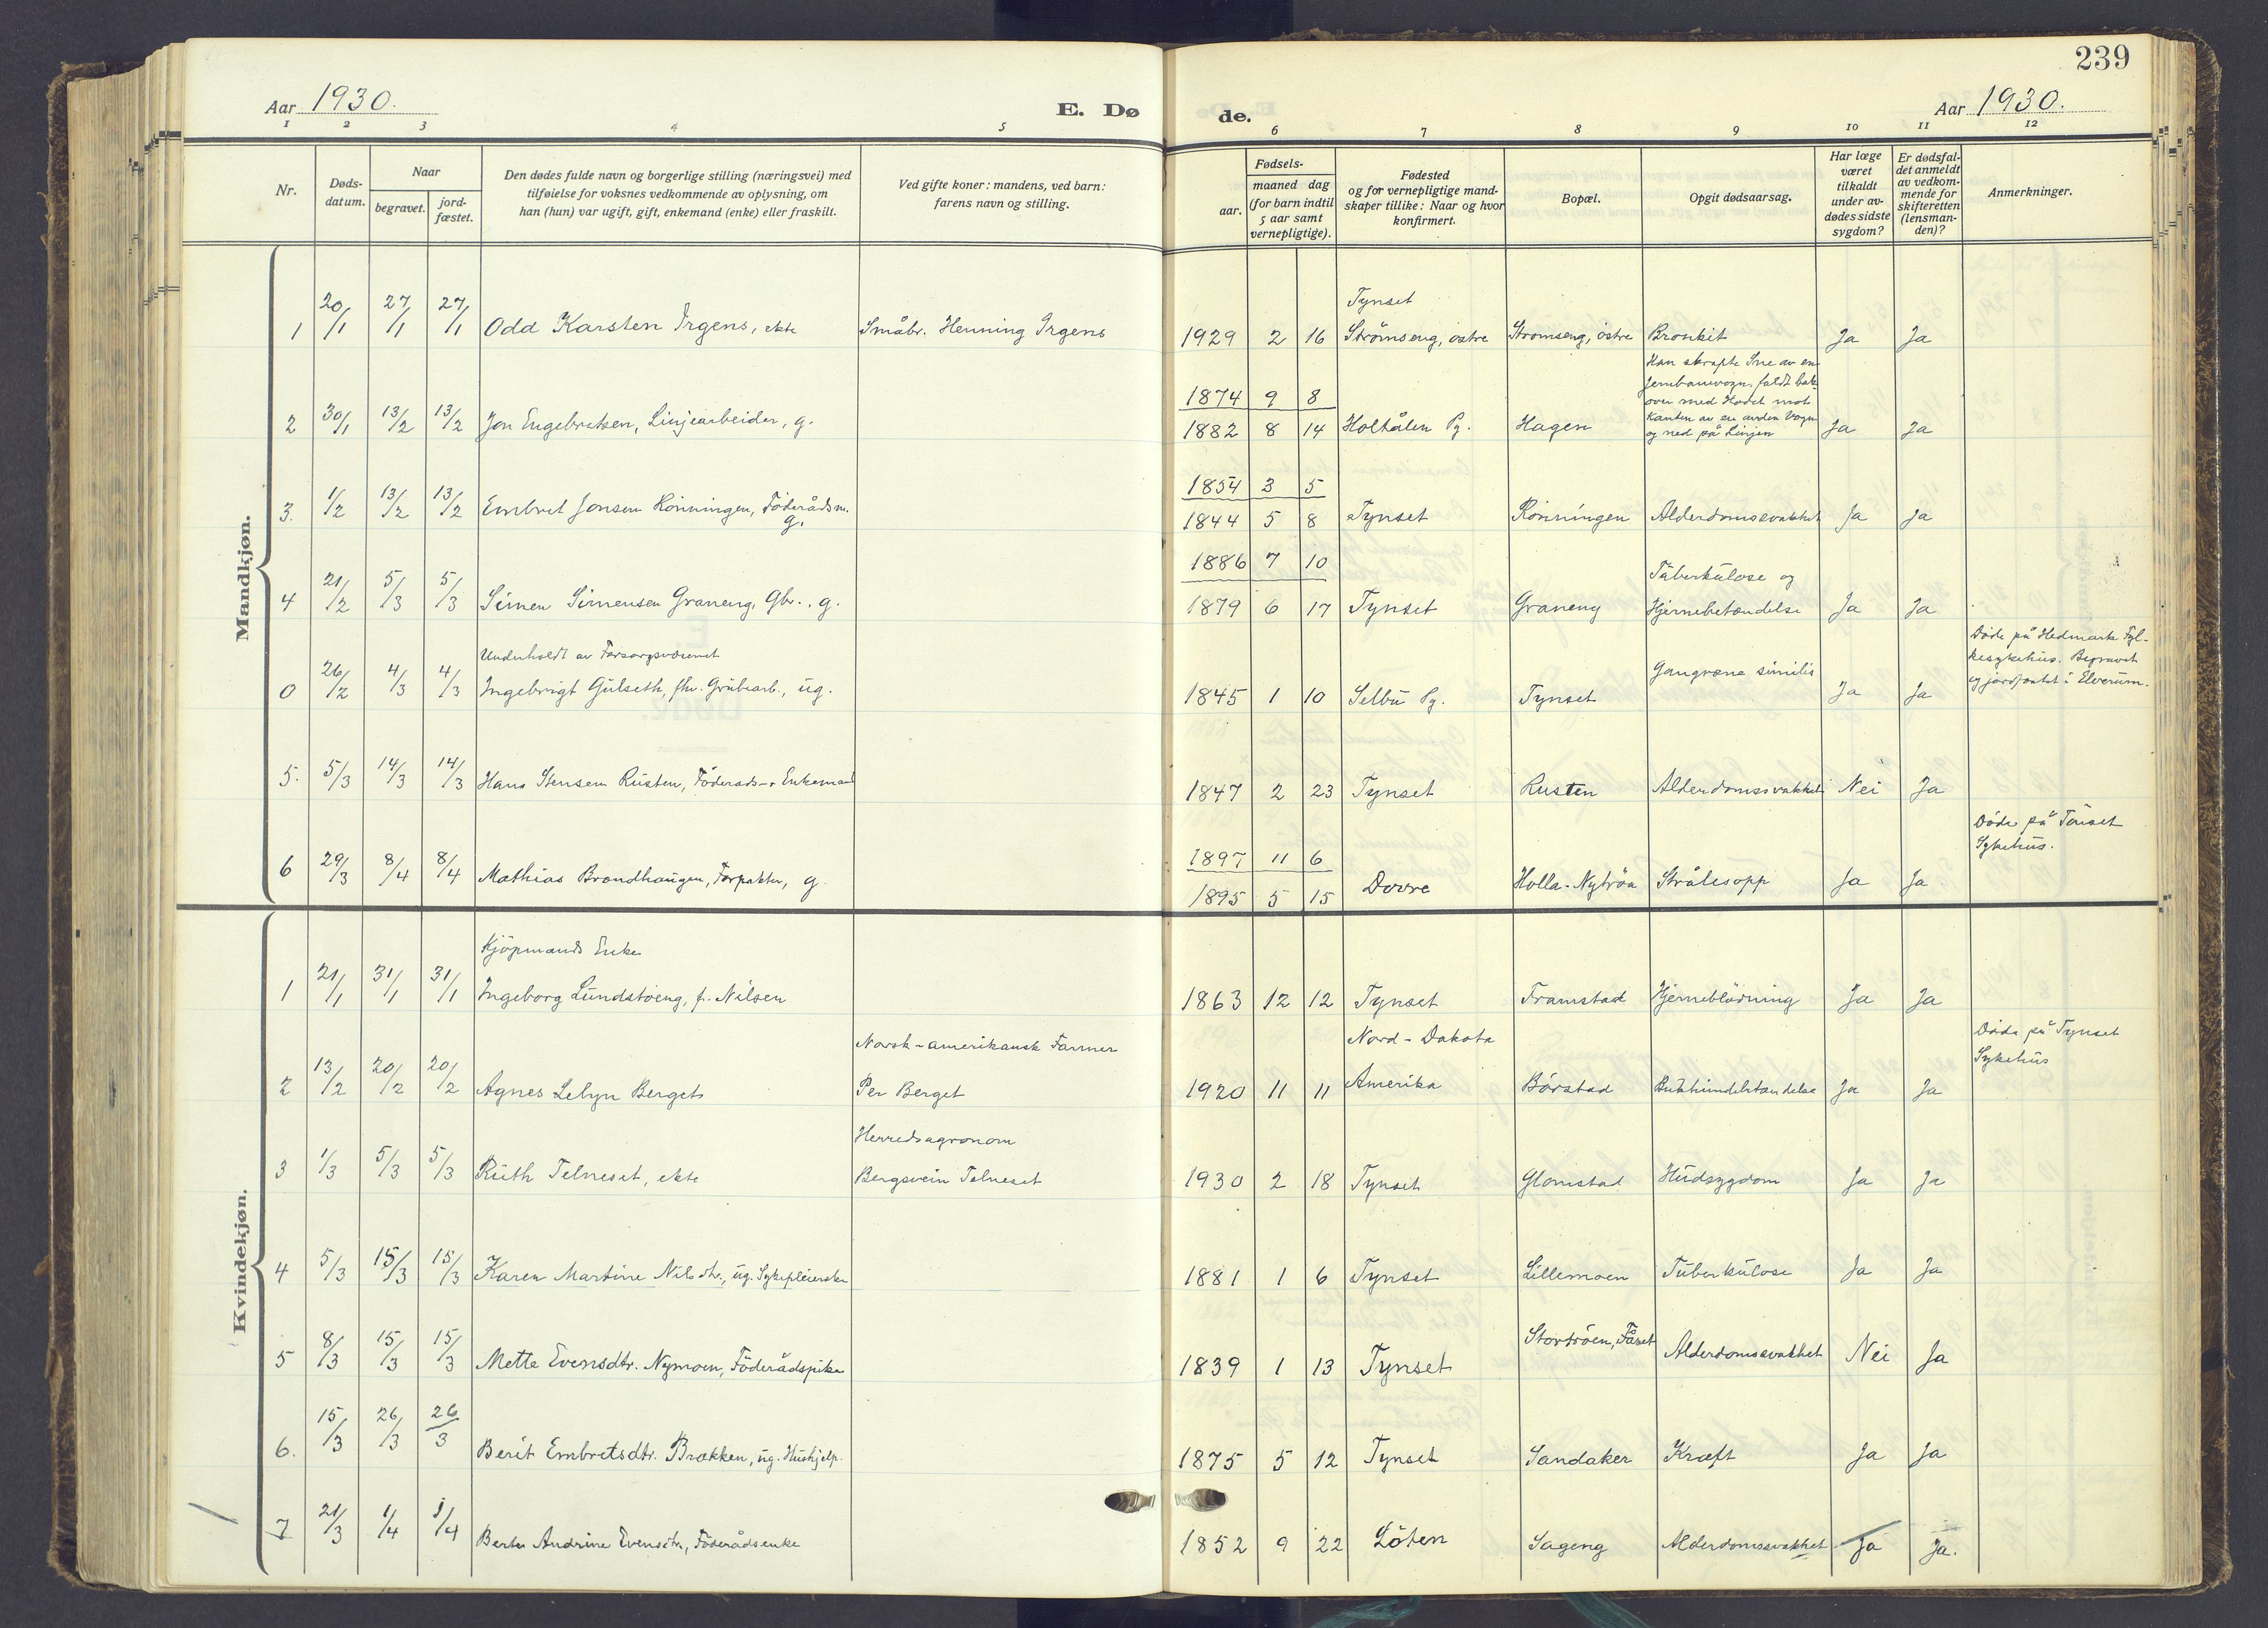 239
Aar 1930.
E. Dø
de.
Aar 1930.
1 2 3 4 5 6 7 8 9 10 11 12
Nr.
Døds-
datum.
Naar
begravet.
jord-
fæstet.
Den dødes fulde navn og borgerlige stilling (næringsvei) med
tilføielse for voksnes vedkommende av oplysning, om
han (hun) var ugift, gift, enkemand (enke) eller fraskilt.
Ved gifte koner: mandens, ved barn:
farens navn og stilling.
Fødsels-
aar.
maaned dag
(for barn indtil
5 aar samt
vernepligtige).
Fødested
og for vernepligtige mand-
skaper tillike: Naar og hvor
konfirmert.
Bopæl.
Opgit dødsaarsag.
Har læge
været
tilkaldt
under av-
dødes sidste
sygdom?
Er dødsfal-
det anmeldt
av vedkom-
mende for
skifteretten
(lensman-
den)?
Anmerkninger.
Mandkjøn.
Tynset
1 20/1 27/1 27/1 Odd Karsten Irgens, ekte Småbr. Henning Irgens 1929 2 16 Strömseng, östre Strömseng, östre Bronkit Ja Ja
Han skrapte Sne av en
Jernbanevogn, faldt bak
1874 9 8 over med Hodet mot
Kanten av en anden Vogn
2 30/1 13/2 13/2 Jon Engebretsen, Linjearbeider, g. 1882 8 14 Holtålen Pg. Hagen og ned på Linjen Ja Ja
1854 3 5
3. 1/2 13/2 13/2 Embret Jonsen Rönningen, Föderådsm. 1844 5 8 Tynset Rönningen Alderdomssvakhet Ja Ja
g.
1886 7 10 Tuberkulose og
4 21/2 5/3 5/3 Simen Simensen Graneng, Gbr., g. 1879 6 17 Tynset Graneng Hjernebetændelse Ja Ja
Underholdt av Forsorgsvæsenet
Døde på Hedmark Fyl-
kesykehus. Begravet
0 26/2 4/3 4/3 Ingebrigt Gulseth, fhv. Grubearb., ug. 1845 1 10 Selbu Pg. Tynset Gangræna similis Ja Ja og jordfæstet i Elverum.
5. 5/3 14/3 14/3 Hans Stensen Rusten, Föderåds- Enkemand 1847 2 23 Tynset Rusten Alderdomssvakhet Nei Ja
Döde på Tönset
Sykehus.
1897 11 6
6 29/3 8/4 8/4 Mathias Brendhaugen, Forpakter, g. 1895 5 15 Dovre Holla-Nytröa Strålesopp Ja Ja
Kvindekjøn.
Kjöpmands Enke
1 21/1 31/1 31/1 Ingeborg Lundstöeng, f. Nilsen 1863 12 12 Tynset Framstad Hjerneblödning Ja Ja
Norsk-amerikansk Farmer Nord-Dakota Döde på Tynset
Sykehus
2 13/2 20/2 20/2 Agnes Berget Per Berget 1920 11 11 Amerika Börstad Bukhindebetændelse Ja Ja
Herredsagronom
3 1/3 5/3 5/3 Ruth Telneset, ekte Bergsvein Telneset 1930 2 18 Tynset Glomstad Hudsygdom Ja Ja
4 5/3 15/3 15/3 Karen Martine Nilsdtr., ug. Sykepleierske 1881 1 6 Tynset Lillemoen Tuberkulose Ja Ja
5 8/3 15/3 15/3 Mette Evensdtr. Nymoen, Föderådspike 1839 1 13 Tynset Stortröen, Fåset Alderdomssvakhet Nei Ja
6. 15/3 26/3 26/3 Berit Embretsdtr. Brækken, ug. Hushjelp. 1875 5 12 Tynset Sandaker Kræft Ja Ja
7 21/3 1/4 1/4 Berte Andrine Evensdtr., Föderådsenke 1852 9 22 Löten Sageng Alderdomssvakhet Ja Ja.